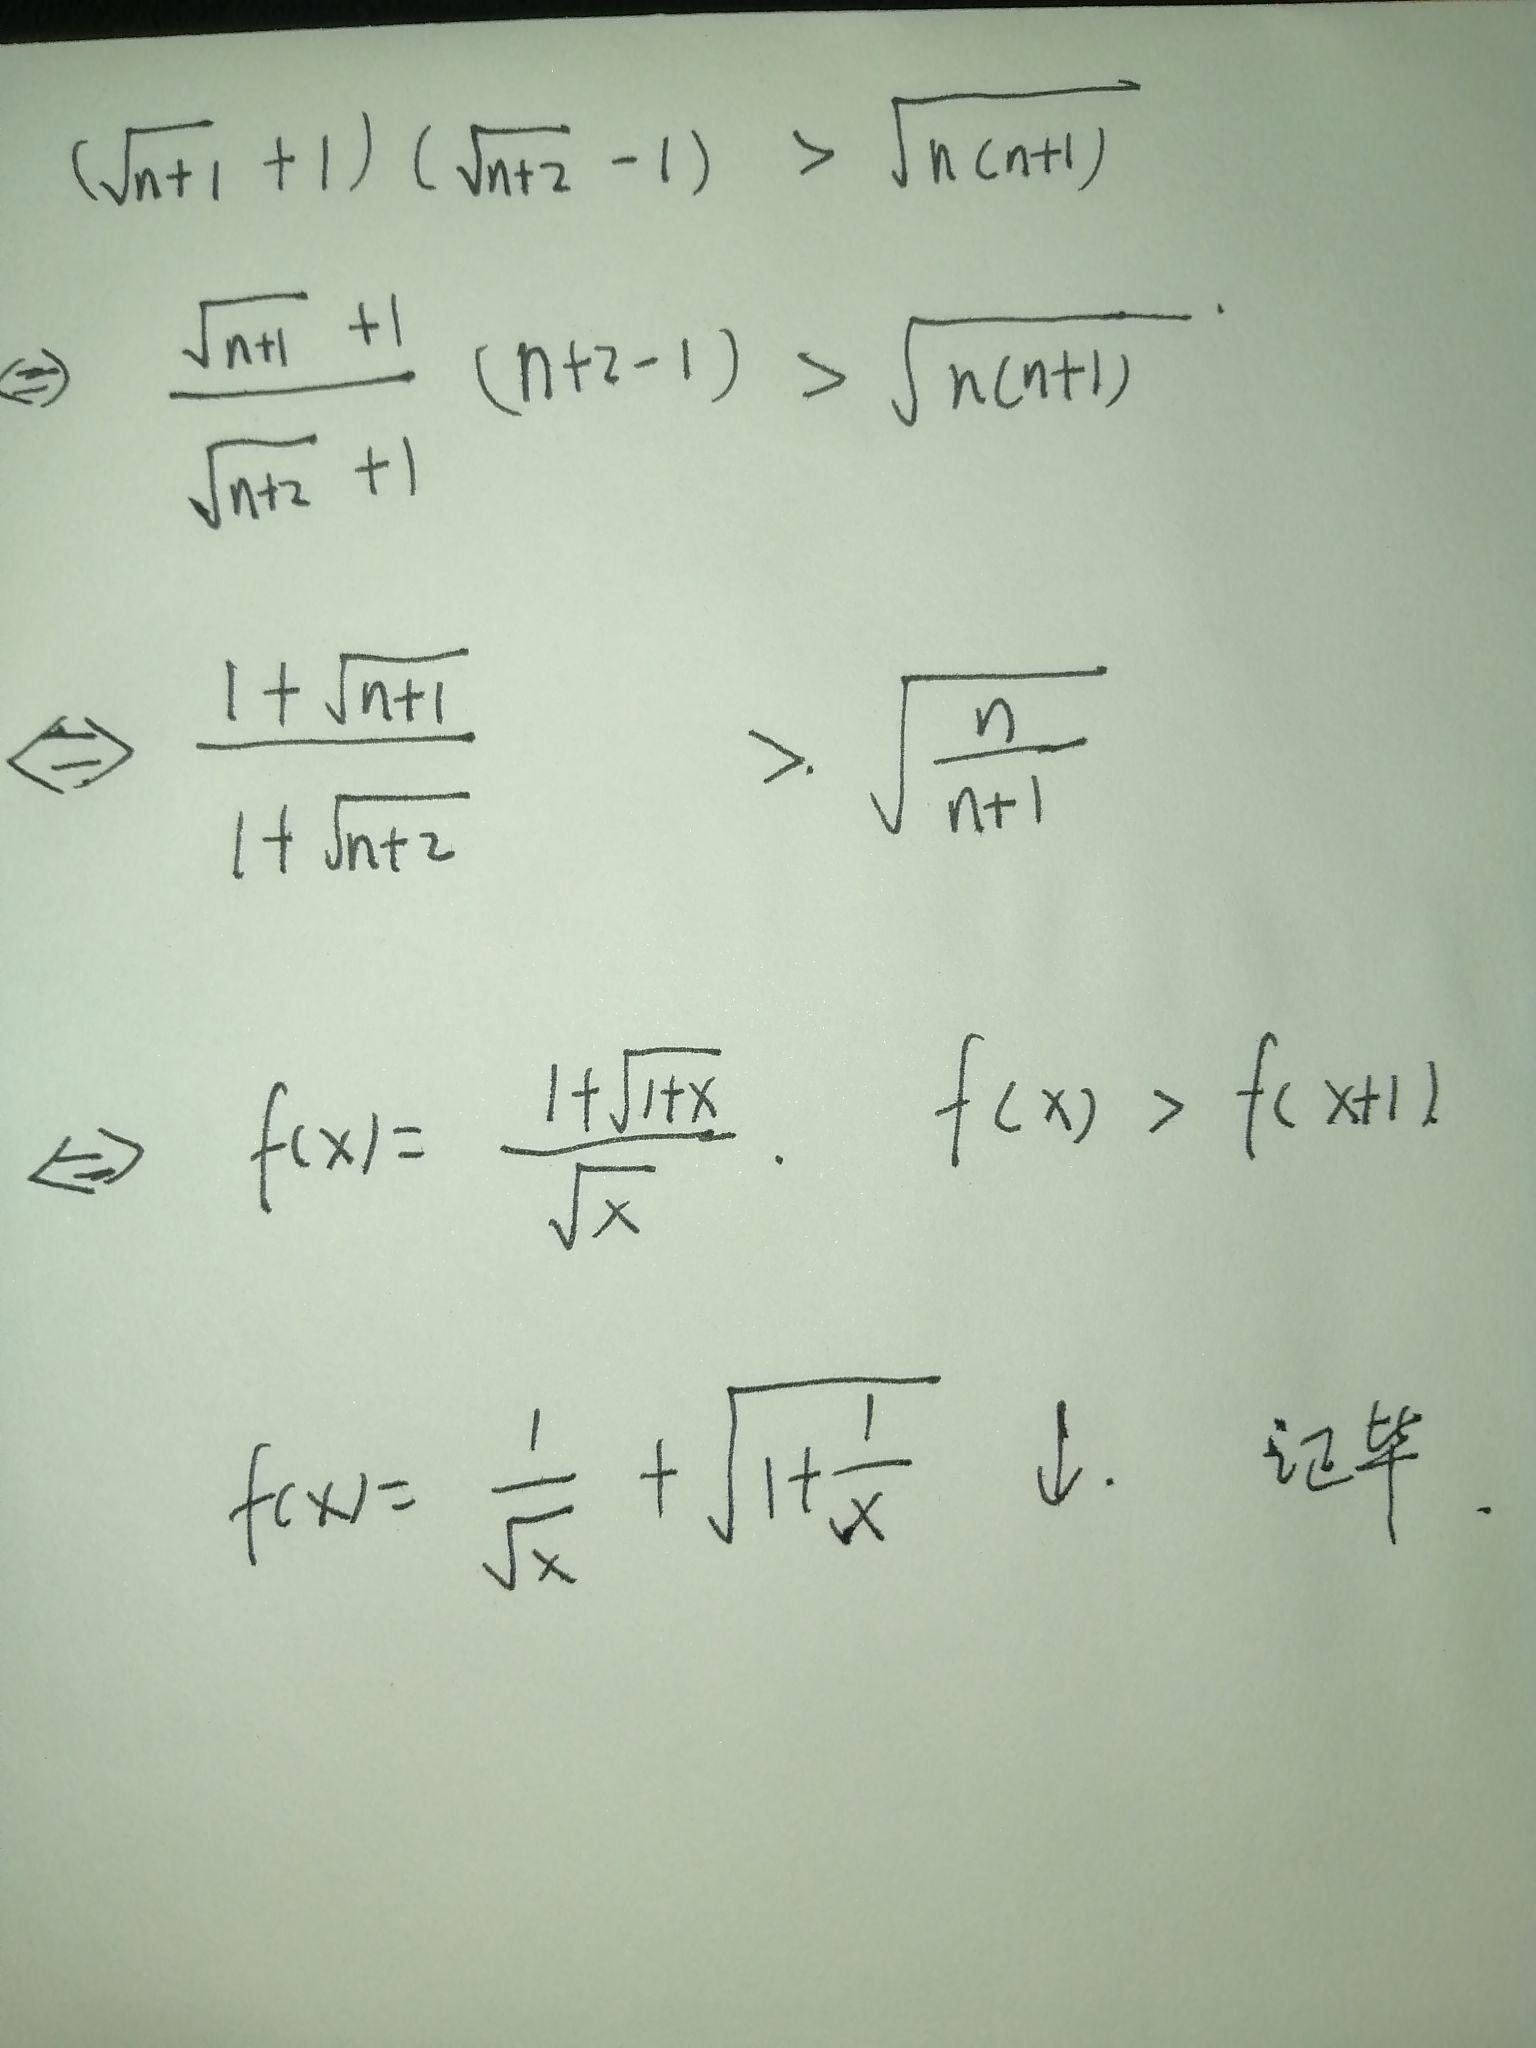 (√(n+1) + 1) (√(n+2) - 1) > √(n(n+1))
⇔ (√(n+1) + 1)/(√(n+2) + 1) (n+2-1) > √(n(n+1)).
⇔ (1 + √(n+1))/(1 + √(n+2)) > √(n/(n+1))
⇔ f(x) = (1+√(1+x))/√x . f(x) > f(x+1)
f(x) = 1/√x + √(1+1/x) ↓. 记毕.